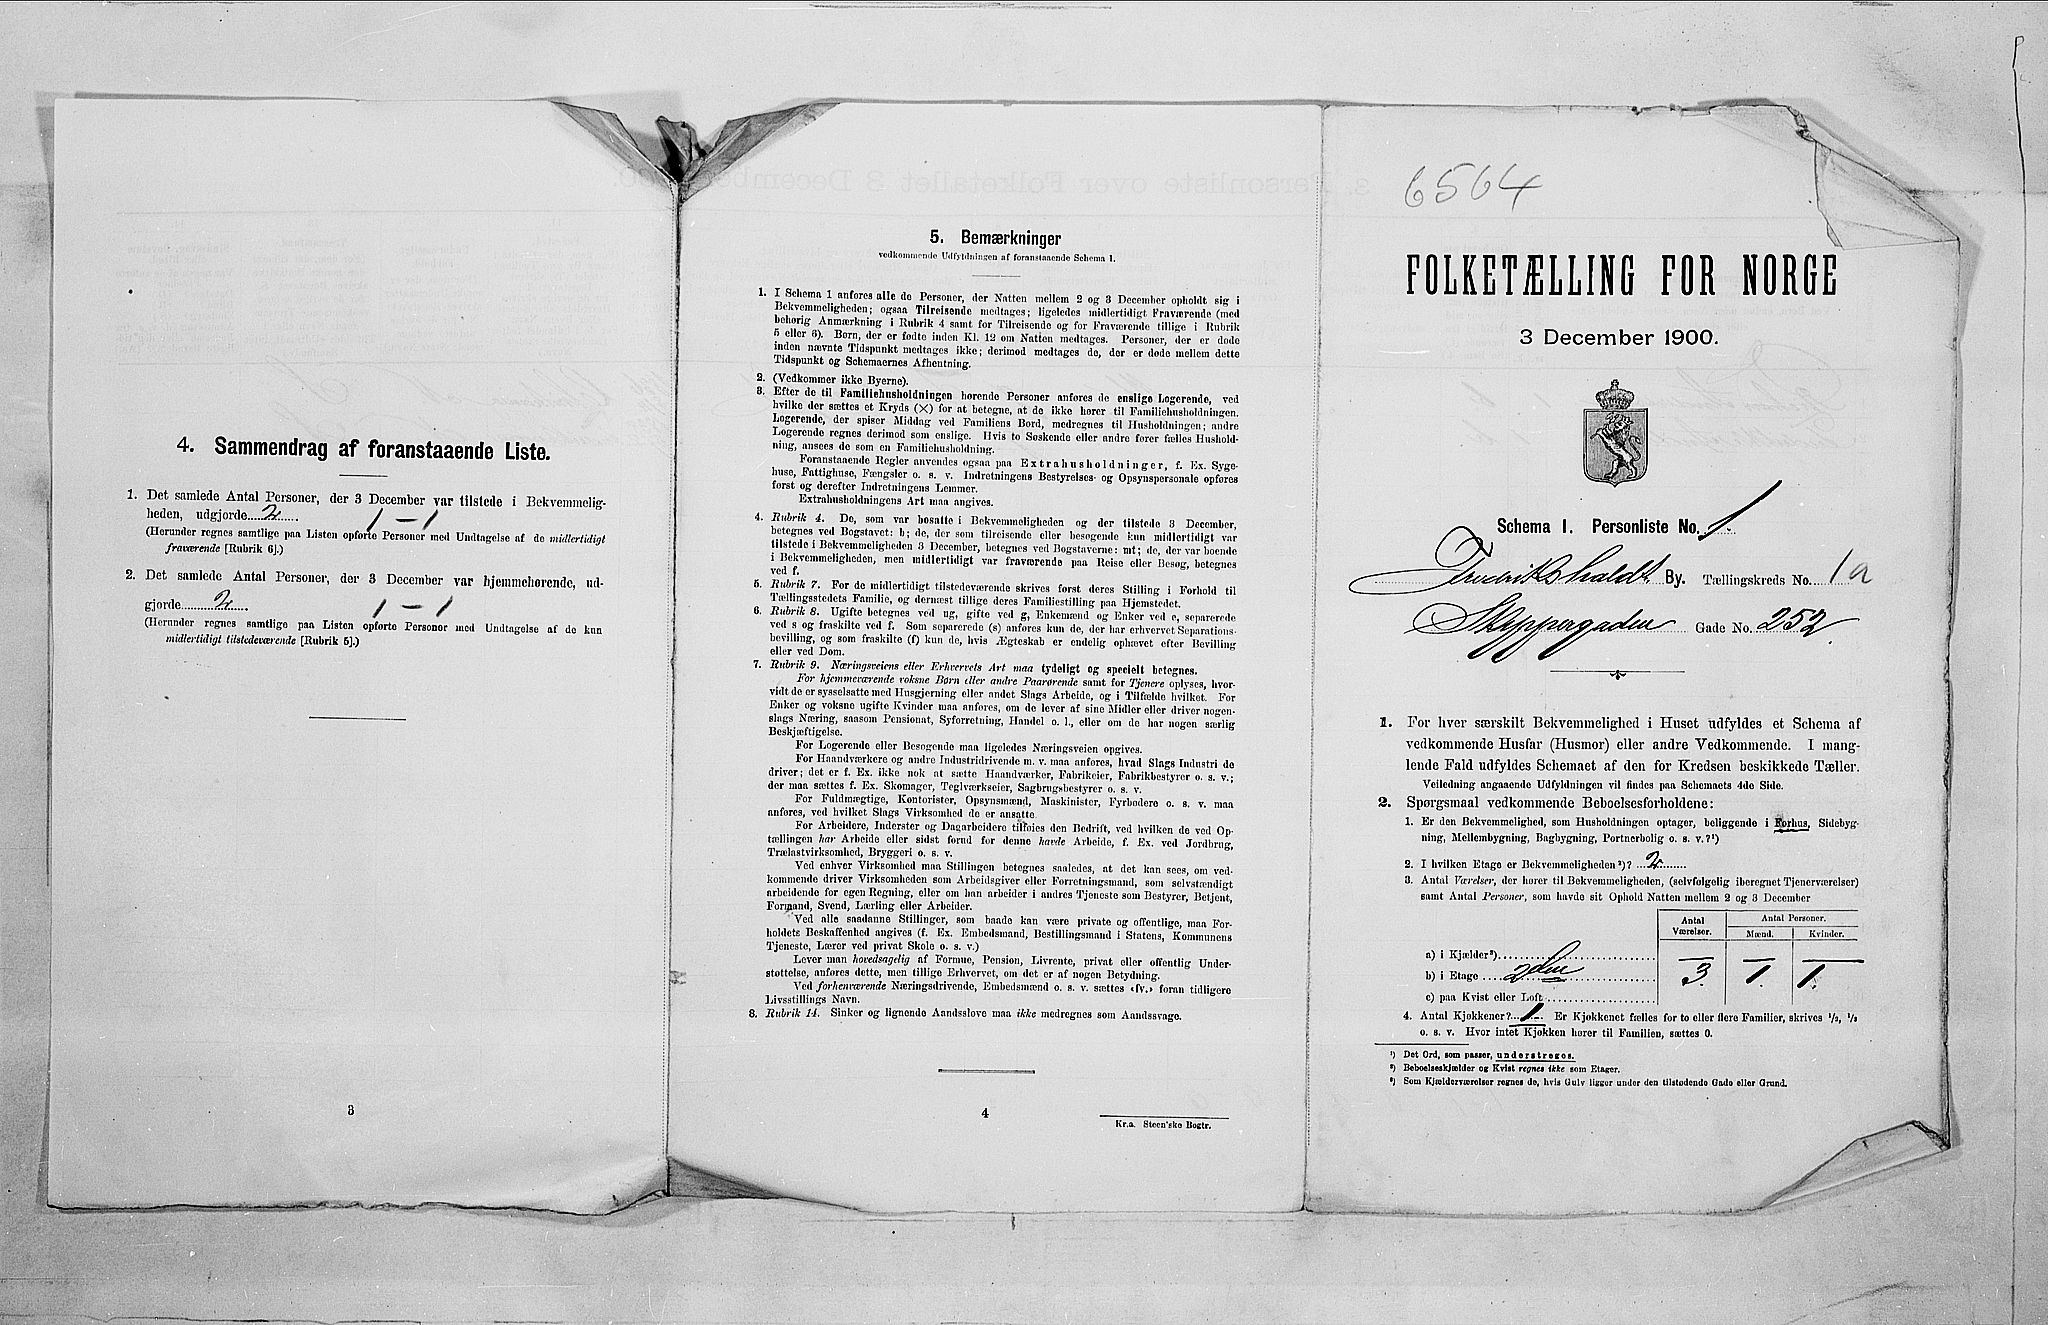 4. Sammendrag af foranstaaende Liste.
1. Det samlede Antal Personer, der 3 December var tilstede i Bekvemmelig-
heden, udgjorde 2 1 – 1
(Herunder regnes samtlige paa Listen opførte Personer med Undtagelse af de midlertidigt
fraværende [Rubrik 6].)
2. Det samlede Antal Personer, der 3 December var hjemmehørende, ud-
gjorde 2 1 – 1
(Herunder regnes samtlige paa Listen opførte Personer med Undtagelse af de kun
midlertidigt tilstedeværende [Rubrik 5].)
3
5. Bemærkninger
vedkommende Udfyldningen af foranstaaende Schema 1.
1. I Schema 1 anføres alle de Personer, der Natten mellem 2 og 3 December opholdt sig i
Bekvemmeligheden; ogsaa Tilreisende medtages; ligeledes midlertidigt Fraværende (med
behørig Anmærkning i Rubrik 4 samt for Tilreisende og for Fraværende tillige i Rubrik
5 eller 6). Børn, der er fødte inden Kl. 12 om Natten medtages. Personer, der er døde
inden nævnte Tidspunkt medtages ikke; derimod medtages de, der er døde mellem dette
Tidspunkt og Schemaernes Afhentning.
2. (Vedkommer ikke Byerne).
3. Efter de til Familiehusholdningen hørende Personer anføres de enslige Logerende, ved
hvilke der sættes et Kryds (×) for at betegne, at de ikke hører til Familiehusholdningen.
Logerende, der spiser Middag ved Familiens Bord, medregnes til Husholdningen; andre
Logerende regnes derimod som enslige. Hvis to Søskende eller andre fører fælles Hushold-
ning, ansees de som en Familiehusholdning.
Foranstaaende Regler anvendes ogsaa paa Extrahusholdninger, f. Ex. Syge-
huse, Fattighuse, Fængsler o. s. v. Indretningens Bestyrelses- og Opsynspersonale opføres
først og derefter Indretningens Lemmer.
Extrahusholdningens Art maa angives.
4. Rubrik 4. De, som var bosatte i Bekvemmeligheden og der tilstede 3 December,
betegnes ved Bogstavet: b; de, der som tilreisende eller besøgende kun midlertidigt var
tilstede i Bekvemmeligheden 3 December, betegnes ved Bogstaverne: mt; de, der var boende
i Bekvemmeligheden, men midlertidigt var fraværende paa Reise eller Besøg, betegnes
ved f.
5. Rubrik 7. For de midlertidigt tilstedeværende skrives først deres Stilling i Forhold til
Tællingsstedets Familie, og dernæst tillige deres Familiestilling paa Hjemstedet.
6. Rubrik 8. Ugifte betegnes ved ug, gifte ved g, Enkemænd og Enker ved e, separerede
ved s og fraskilte ved f. Som separerede (s) anføres kun de, der har erhvervet Separations-
bevilling, og som fraskilte (f) kun de, hvis Ægteskab er endelig ophævet efter Bevilling
eller ved Dom.
7. Rubrik 9. Næringsveiens eller Erhvervets Art maa tydeligt og specielt betegnes.
For hjemmeværende voksne Børn eller andre Paarørende samt for Tjenere oplyses, hvor-
vidt de er sysselsatte med Husgjerning eller andet Slags Arbeide, og i Tilfælde hvilket. For
Enker og voksne ugifte Kvinder maa anføres, om de lever af sine Midler eller driver nogen-
slags Næring, saasom Pensionat, Syforretning, Handel o. l., eller om de har nogen særlig
Beskjæftigelse.
For Logerende eller Besøgende maa ligeledes Næringsveien opgives.
For Haandværkere og andre Industridrivende m. v. maa anføres, hvad Slags Industri de
driver; det er f. Ex. ikke nok at sætte Haandværker, Fabrikeier, Fabrikbestyrer o. s. v.;
der maa sættes f. Ex. Skomager, Teglværkseier, Sagbrugsbestyrer o. s. v.
For Fuldmægtige, Kontorister, Opsynsmænd, Maskinister, Fyrbødere o. s. v. maa
anføres, ved hvilket Slags Virksomhed de er ansatte.
For Arbeidere, Inderster og Dagarbeidere tilføies den Bedrift, ved hvilken de ved Op-
tællingen har Arbeide eller sidst forud for denne havde Arbeide, f. Ex. ved Jordbrug,
Trælastvirksomhed, Bryggeri o. s. v.
Ved enhver Virksomhed maa Stillingen betegnes saaledes, at det kan sees, om ved-
kommende driver Virksomheden som Arbeidsgiver eller Forretningsmand, som selvstændigt
arbeidende for egen Regning, eller om han arbeider i andres Tjeneste som Bestyrer, Betjent,
Formand, Svend, Lærling eller Arbeider.
Ved alle saadanne Stillinger, som baade kan være private og offentlige, maa For-
holdets Beskaffenhed angives (f. Ex. Embedsmand, Bestillingsmand i Statens, Kommunens
Tjeneste, Lærer ved privat Skole o. s. v.)
Lever man hovedsagelig af Formue, Pension, Livrente, privat eller offentlig Under-
støttelse, anføres dette, men tillige Erhvervet, om det er af nogen Betydning.
Ved forhenværende Næringsdrivende, Embedsmænd o. s. v. sættes «fv.» foran tidligere
Livsstillings Navn.
8. Rubrik 14. Sinker og lignende Aandssløve maa ikke medregnes som Aandssvage.
4
Kr.a. Steen'ske Bogtr.
6564
FOLKETÆLLING FOR NORGE
3 December 1900.
Schema 1. Personliste No. 1.
Fredrikshald By. Tællingskreds No. 1a
Skippergaden Gade No. 252.
1. For hver særskilt Bekvemmelighed i Huset udfyldes et Schema af
vedkommende Husfar (Husmor) eller andre Vedkommende. I mang-
lende Fald udfyldes Schemaet af den for Kredsen beskikkede Tæller.
Veiledning angaaende Udfyldningen vil findes paa Schemaets 4de Side.
2. Spørgsmaal vedkommende Beboelsesforholdene:
1. Er den Bekvemmelighed, som Husholdningen optager, beliggende i Forhus, Sidebyg-
ning, Mellembygning, Bagbygning, Portnerbolig o. s. v.?¹)
2. I hvilken Etage er Bekvemmeligheden²)? 2
3. Antal Værelser, der hører til Bekvemmeligheden, (selvfølgelig iberegnet Tjenerværelser)
samt Antal Personer, som havde sit Ophold Natten mellem 2 og 3 December
Antal Værelser. Antal Personer.
Mænd. Kvinder.
a) i Kjælder³) – – –
b) i Etage 2den 3. 1. 1.
c) paa Kvist eller Loft
4. Antal Kjøkkener? 1. Er Kjøkkenet fælles for to eller flere Familier, skrives ¹/₂, ¹/₃
o. s. v. Hvor intet Kjøkken hører til Familien, sættes 0.
¹) Det Ord, som passer, understreges.
²) Beboelseskjælder og Kvist regnes ikke som Etager.
³) Som Kjælderværelser regnes de, hvis Gulv ligger under den tilstødende Gade eller Grund.